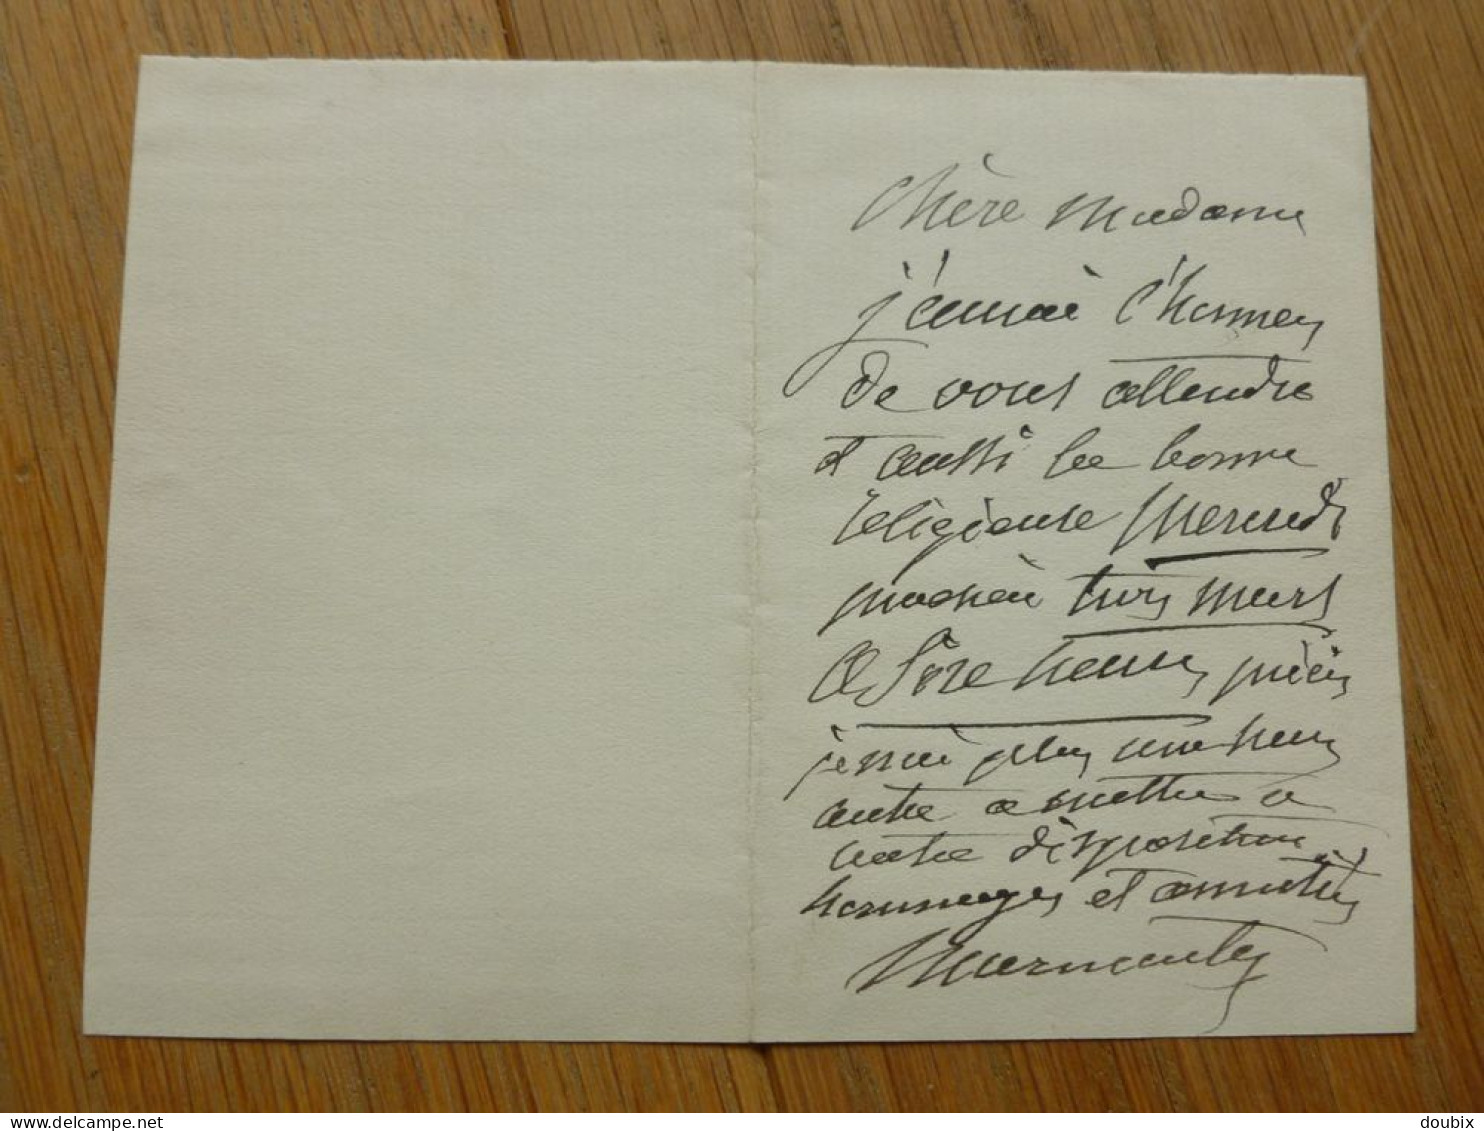 Chère Madame
j'aurai l'honneur
de vous attendre
et aussi la bonne
religieuse Mercredi
prochain trois mars
à 1ère heure, précis
je n'ai plus une heure
autre à mettre à
votre disposition
hommages et amitiés
Marmontel
doubix